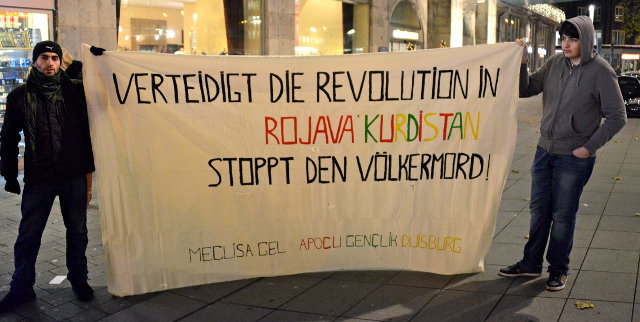 VERTEIDIGT DIE REVOLUTION IN
ROJAVA KURDISTAN
STOPPT DEN VÖLKERMORD!
MECLISA GEL APOCU GENÇLIK DUISBURG